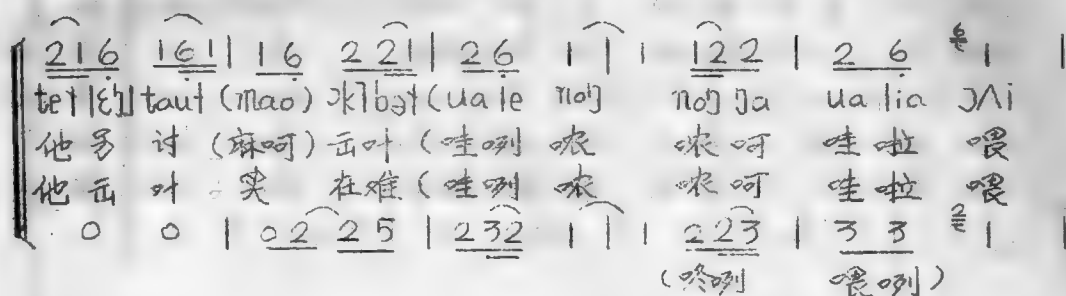 216 161 | 16 221 | 26 1 | 1 | 122 | 2 6 6 1 |
taut (mao) (ua le noŋ noŋ ŋa ua lia ɔʌi
他另 讨 (麻呵) 击叶 (哇咧 哝 哝呵 哇啦 喂
他击 叶 笑 在难 (哇咧 哝 哝呵 哇啦 喂
0 0 | 02 25 | 232 1 | 1 | 223 | 3 3 2 1 |
(咚咧 喂咧)